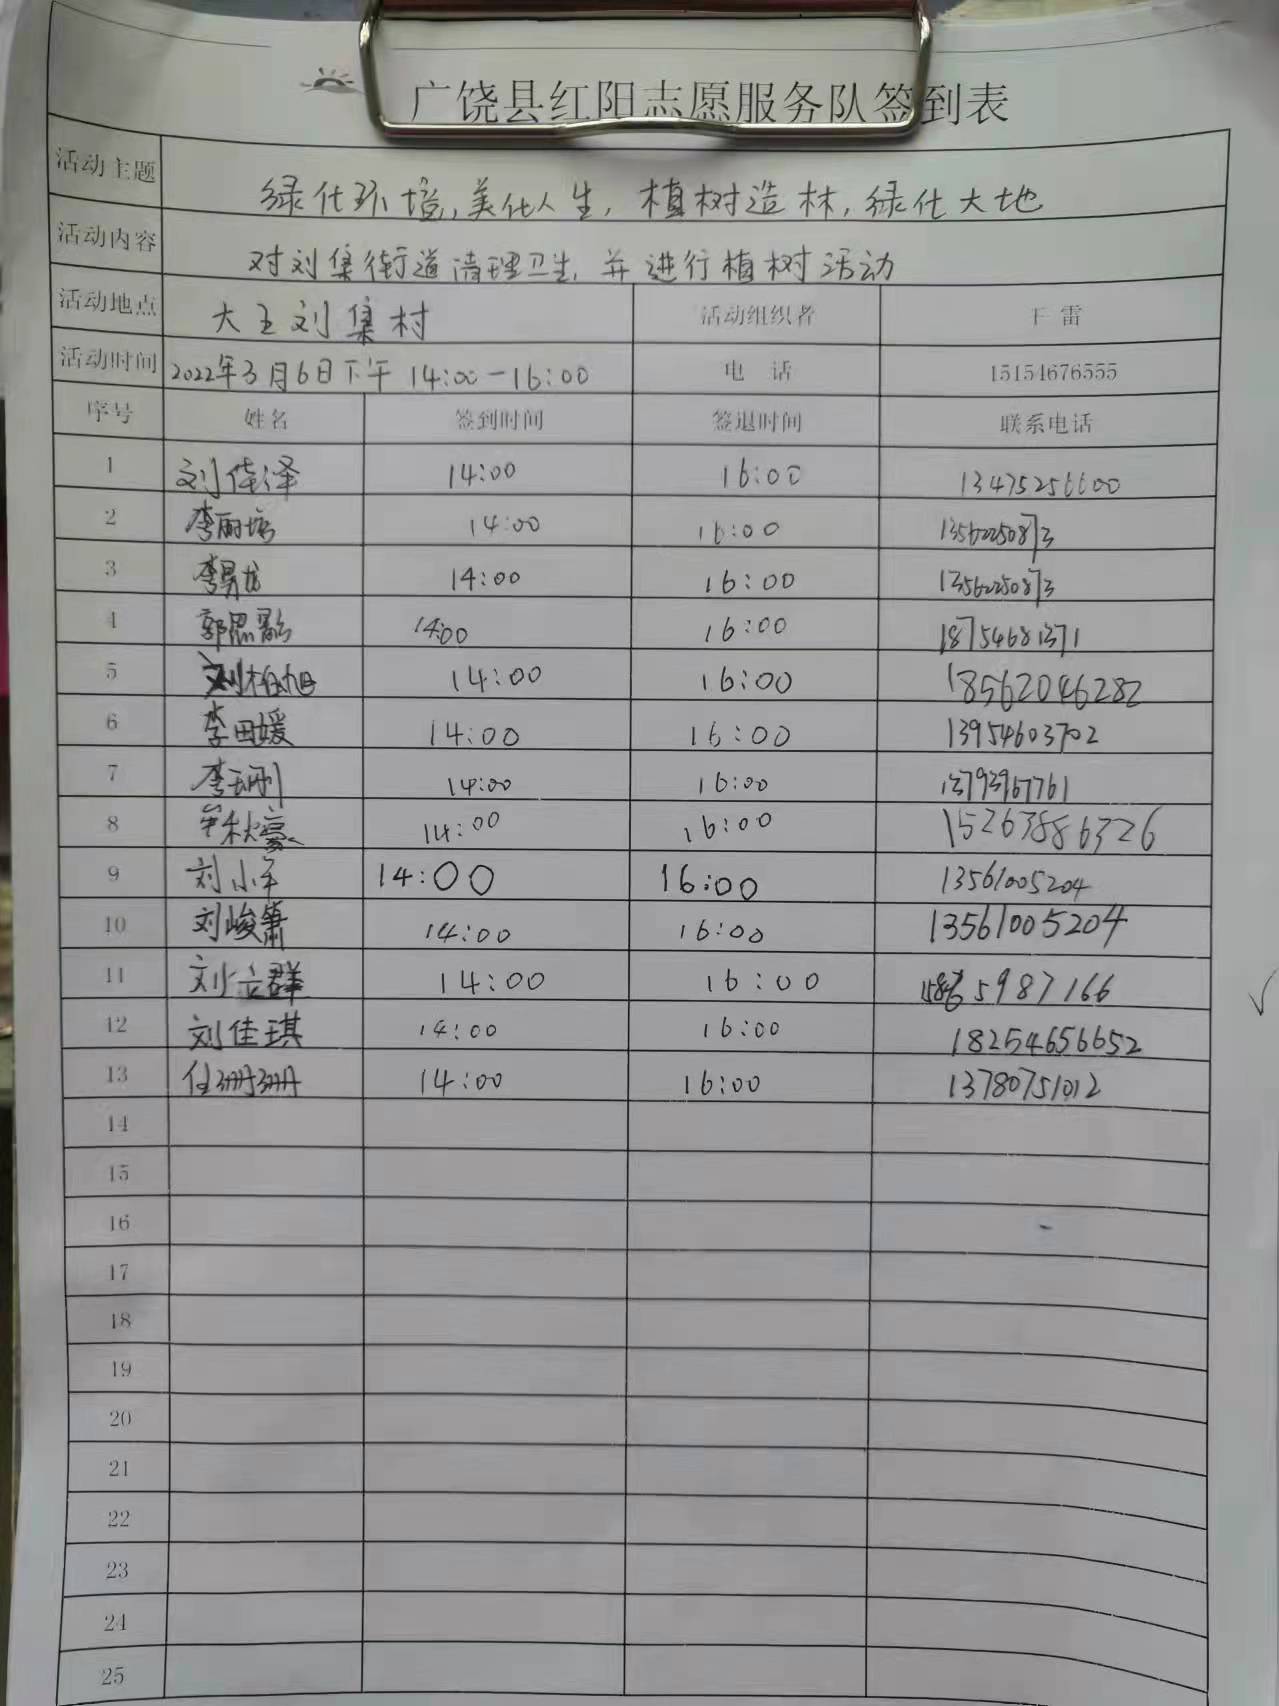 广饶县红阳志愿服务队签到表
活动主题 绿化环境,美化人生,植树造林,绿化大地
活动内容 对刘集街道清理卫生,并进行植树活动
活动地点 大王刘集村 活动组织者 王雷
活动时间 2022年3月6日下午 14:00-16:00 电 话 15154676555
序号 姓名 签到时间 签退时间 联系电话
1 刘佳泽 14:00 16:00 13475256600
2 李丽 14:00 16:00 13562250873
3 李昊龙 14:00 16:00 13562250873
4 郭思 14:00 16:00 18754681371
5 刘柏旭 14:00 16:00 18562046282
6 李田媛 14:00 16:00 13954603702
7 李 14:00 16:00 13793967761
8 秋豪 14:00 16:00 15263886326
9 刘小军 14:00 16:00 13561005204
10 刘峻箫 14:00 16:00 13561005204
11 刘立群 14:00 16:00 5987166
12 刘佳琪 14:00 16:00 18254656652
13 任珊珊 14:00 16:00 13780751012
14
15
16
17
18
19
20
21
22
23
24
25